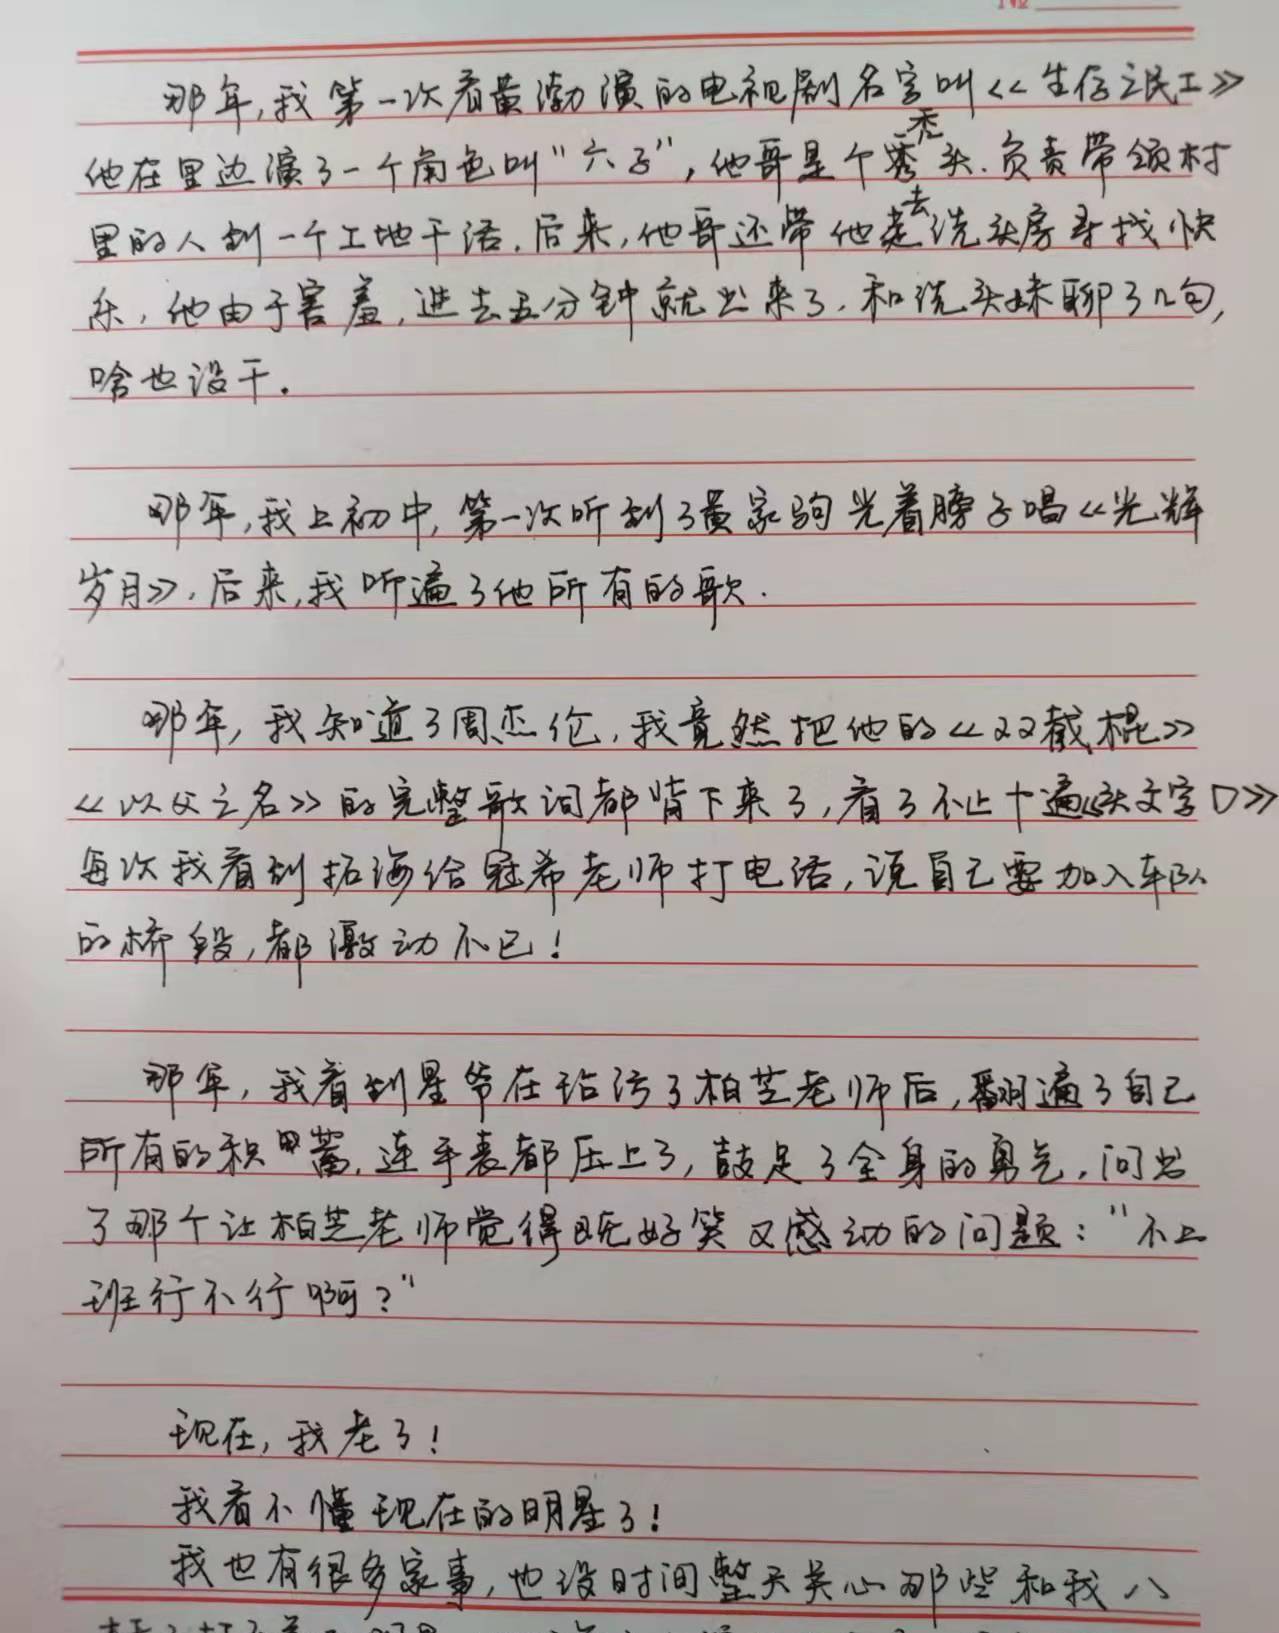 No
那年,我第一次看黄渤演的电视剧名字叫《生存之民工》
他在里边演了一个角色叫"六子",他哥是个秃头.负责带领村
里的人到一个工地干活.后来,他哥还带他去洗头房寻找快
乐,他由于害羞,进去五分钟就出来了.和洗头妹聊了几句,
啥也没干.
那年,我上初中,第一次听到了黄家驹光着膀子唱《光辉
岁月》.后来,我听遍了他所有的歌.
那年,我知道了周杰伦,我竟然把他的《双截棍》
《以父之名》的完整歌词都背下来了,看了不止十遍《头文字D》
每次我看到拓海给冠希老师打电话,说自己要加入车队
的桥段,都激动不已!
那年,我看到星爷在玷污了柏芝老师后,翻遍了自己
所有的积蓄,连手表都压上了,鼓足了全身的勇气,问出
了那个让柏芝老师觉得既好笑又感动的问题:"不上
班行不行啊?"
现在,我老了!
我看不懂现在的明星了!
我也有很多家事,也没时间整天关心那些和我八